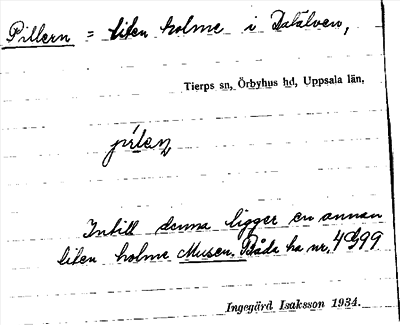 Pillern = liten holme i Dalälven,
Tierps sn, Örbyhus hd, Uppsala län,
Intill denna ligger en annan
liten holme Musen. Båda ha nr. 4999
Ingegärd Isaksson 1934.